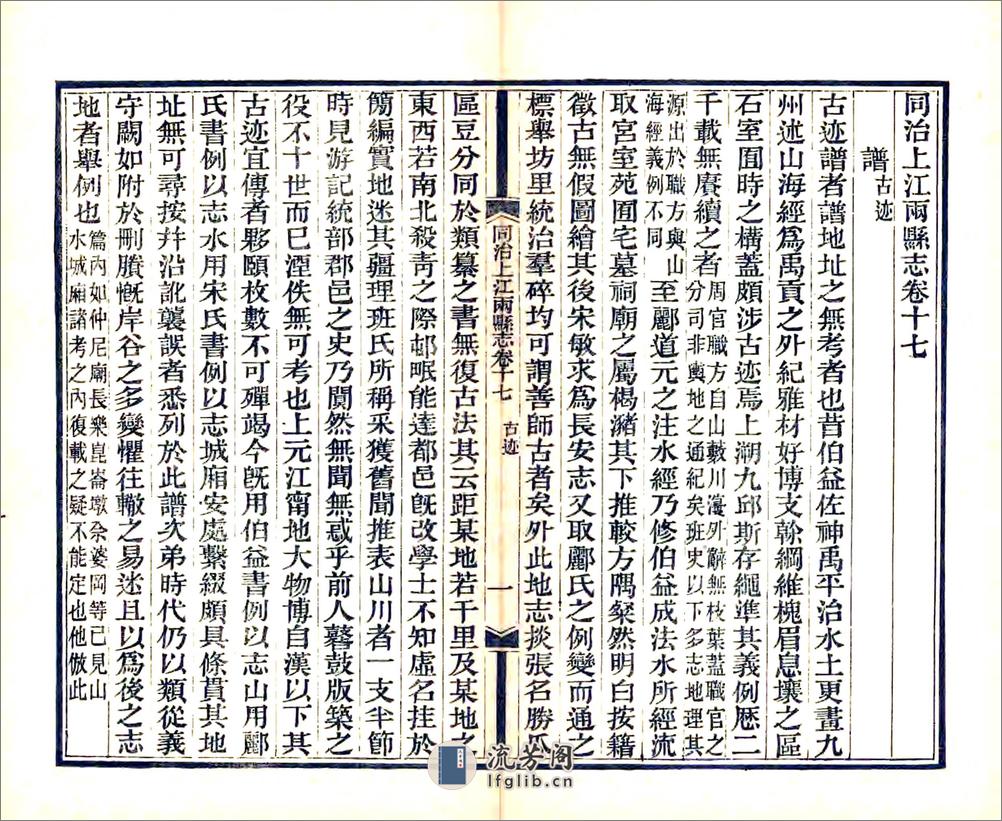 同治上江兩縣志卷十七
譜古迹
古迹譜者譜地址之無考者也昔伯益佐神禹平治水土更畫九
州述山海經爲禹貢之外紀雅材好博支幹綱維槐眉息壤之區
石室囿時之構蓋頗涉古迹焉上溯九邱斯存繩準其義例歷二
千載無賡續之者周官職方自山藪川濅外辭無枝葉蓋職官之
分司非輿地之通紀矣班史以下多志地理其
源出於職方與山
海經義例不同至酈道元之注水經乃修伯益成法水所經流
取宮室苑囿宅墓祠廟之屬楬櫫其下推較方隅粲然明白按籍
徵古無假圖繪其後宋敏求爲長安志又取酈氏之例變而通之
標舉坊里統治羣碎均可謂善師古者矣外此地志掞張名勝瓜
同治上江兩縣志卷十七 古迹 一
區豆分同於類纂之書無復古法其云距某地若干里及某地之
東西若南北殺靑之際邨眠能達都邑旣改學士不知虛名挂於
簡編實地迷其疆理班氏所稱采獲舊聞推表山川者一支半節
時見游記統部郡邑之史乃闃然無聞無惑乎前人鼛鼓版築之
役不十世而已湮佚無可考也上元江甯地大物博自漢以下其
古迹宜傳者夥頤枚數不可殫竭今旣用伯益書例以志山用酈
氏書例以志水用宋氏書例以志城廂安處繫綴頗具條貫其地
址無可尋按幷沿訛襲誤者悉列於此譜次弟時代仍以類從義
守闕如附於刪賸慨岸谷之多變懼往轍之易迷且以爲後之志
地者舉例也篇內如仲尼廟長樂崑崙墩佘婆岡等已見山
水城廟諸考之內復載之疑不能定也他倣此
流芳阁
lfglib.cn